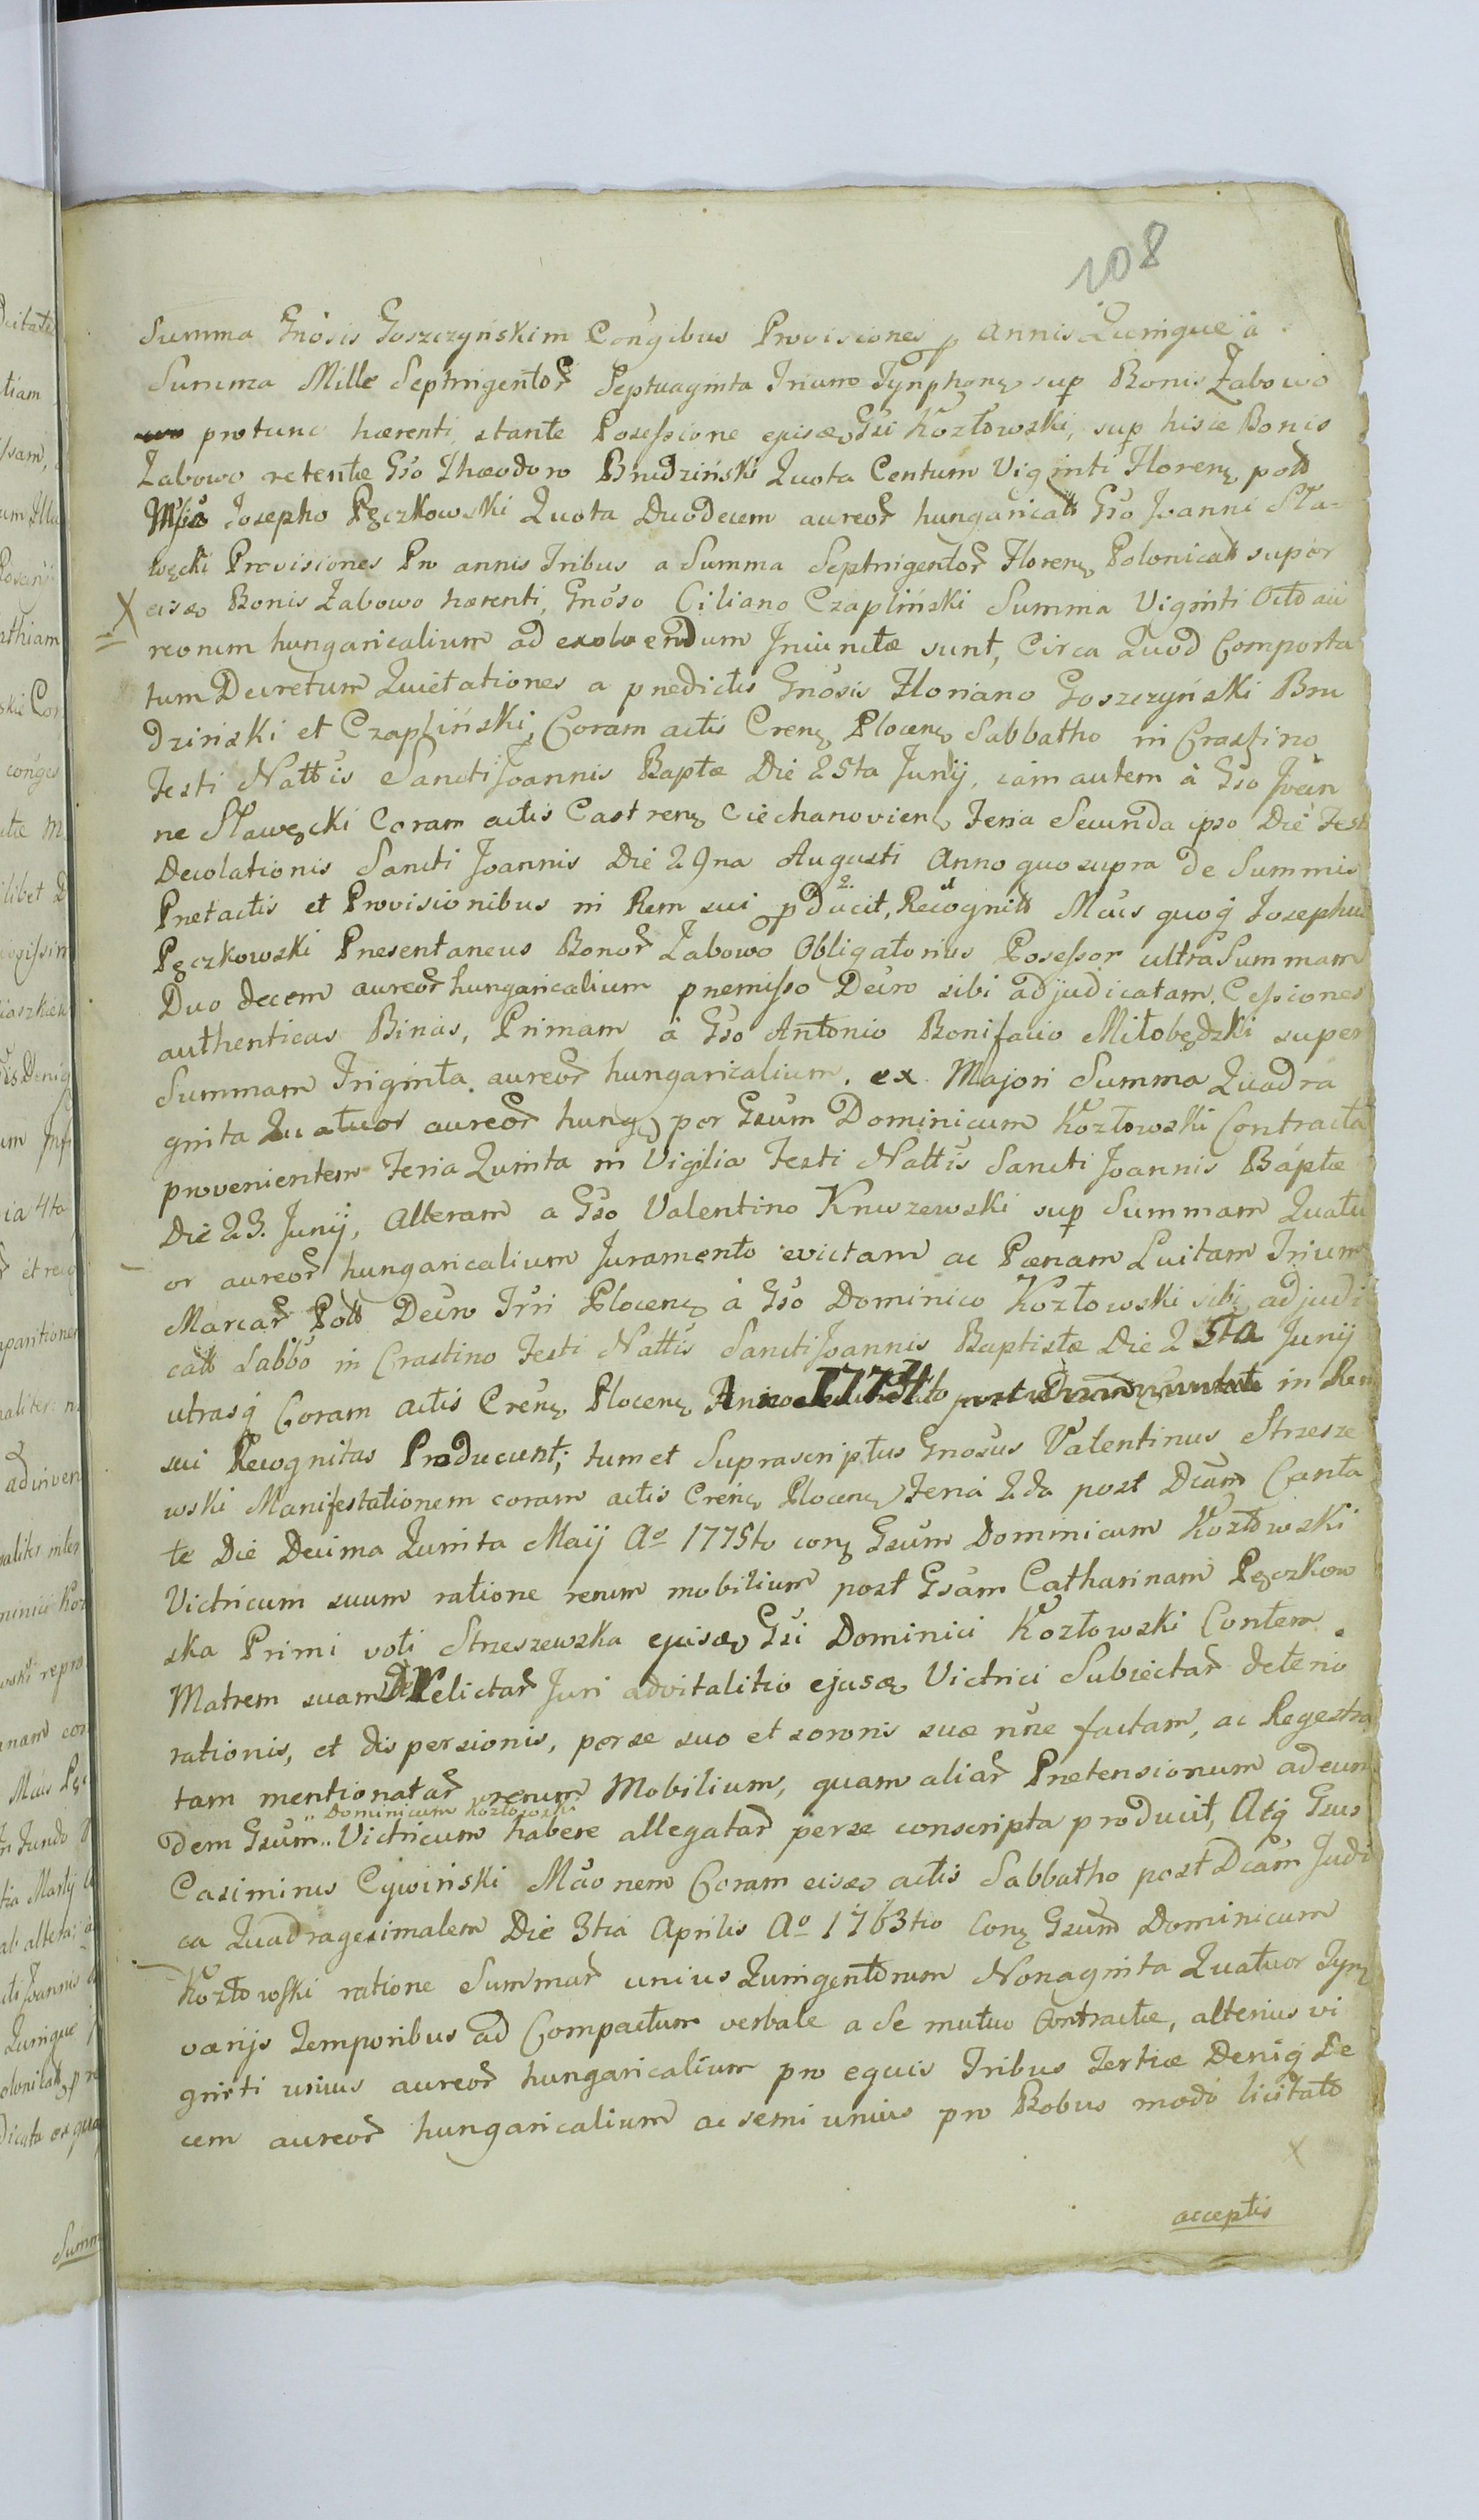 108
Summa Gnosis Goszczyńskim Congibus Provisiones p annis Quinque à
Summa Mille Septingentor Septuaginta Trium Tynphonz sup Bonis Żabowo
protunc hærenti, stante Possessione ejusdo Gsi Kozłowski, sup hisce Bonis
Żabowo retentæ Gso Theodoro Brudziński Quota Centum Viginti Floren poll
Josepho Pęczkowski Quota Duodecem aureor hungaricall Gso Joanni Sła-
węcki Provisiones Pro annis Tribus a Summa Septingentor Floren Polonicall super
X eisdo Bonis Żabowo hærenti, Gnoso Ciliano Czapliński Summa Viginti Octo au
reorum hungaricalium ad exolvendum Iniunctæ sunt, Circa Quod Comporta
tum Decretum Quietationes a prædictis Gnosis Floriano Goszczyński Bru
dziński et Czapliński, Coram actis Cren Plocen Sabbatho in Crastino
Festi Nattis Sancti Joannis Baptæ Die 25ta Junij, iam autem à Gso Joan
ne Sławęcki Coram actis Castren Ciechanovien, Feria Secunda ipso Die Fest
Decolationis Sancti Joannis Die 29na Augusti Anno quo supra de Summis
Prætactis et Provisionibus in Rem sui pducit, Recognitt Mcus quoq Josephus
Pęczkowski Præsentaneus Bonor Żabowo Obligatorius Possessor ultra Summam
Duo decem aureor hungaricalium præmisso Decro sibi adjudicatam, Cessiones
authenticas Binas, Primam à Gso Antonio Bonifacio Miłobędzki super
Summam Triginta aureor hungaricalium, ex Majori Summa Quadra
ginta Quatuor aureor hung per Gsum Dominicum Kozłowski Contracta
provenientem Feria Quinta in Vigilia Festi Nattis Sancti Joannis Baptæ
Die 23. Junij, Alteram a Gso Valentino Kruszewski sup Summam Quatu
or aureor hungaricalium Juramento evictam ac Pænam Luitam Trium
Marcar Poll Decro Trri Plocen à Gso Dominico Kozłowski sibi adjudi
catt Sabbo in Crastino Festi Nattis Sancti Joannis Baptistæ Die 25ta Junij
utrasq Coram actis Cren Plocen Anno in Rem
sui Recognitas Producunt; tum et Suprascriptus Gnosus Valentinus Strzesze
wski Manifestationem coram actis Cren Plocen Feria 2da post Dcam Canta
te Die Decima Quinta Maij Ao 1775to con Gsum Dominicum Kozłowski
Victricum suum ratione rerum mobilium post Gsam Catharinam Pęczkow
ska Primi voti Strzeszewska ejusdo Gsi Dominici Kozłowski Contem
Matrem suam Delictar Juri advitalitio ejusdo Victrici Subiectar deterio
rationis, et dispersionis, per se suo et sororis suæ nne factam, ac Regestra
tam mentionatar rerum Mobilium, quam aliar Prætensionum ad eun
Dominicum Kozłowski
dem Gsum Victricum habere allegatar per se conscripta producit, Atq Gsus
Casimirus Cywiński Mãonem Coram eisdo actis Sabbatho post Dcam Judi
ca Quadragesimalem Die 3tia Aprilis Ao 1763tio Con Gsum Dominicum
Kozłowski ratione Summar unius Quingentorum Nonaginta Quatuor Tyn
varijs Temporibus ad Compactum verbale a Se mutuo Contractæ, alterius vi
ginti unius aureor hungaricalium pro equis Tribus Tertiæ Deniq De
cem aureor hungaricalium ac semi unius pro Bobus modo licitato
acceptis